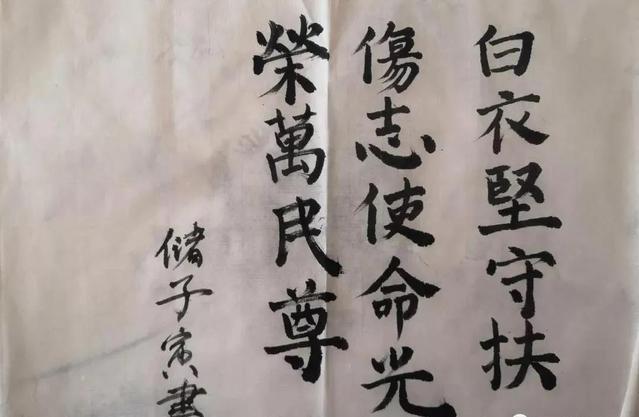 白衣堅守扶
傷志使命光
榮萬民尊
儲子寅書